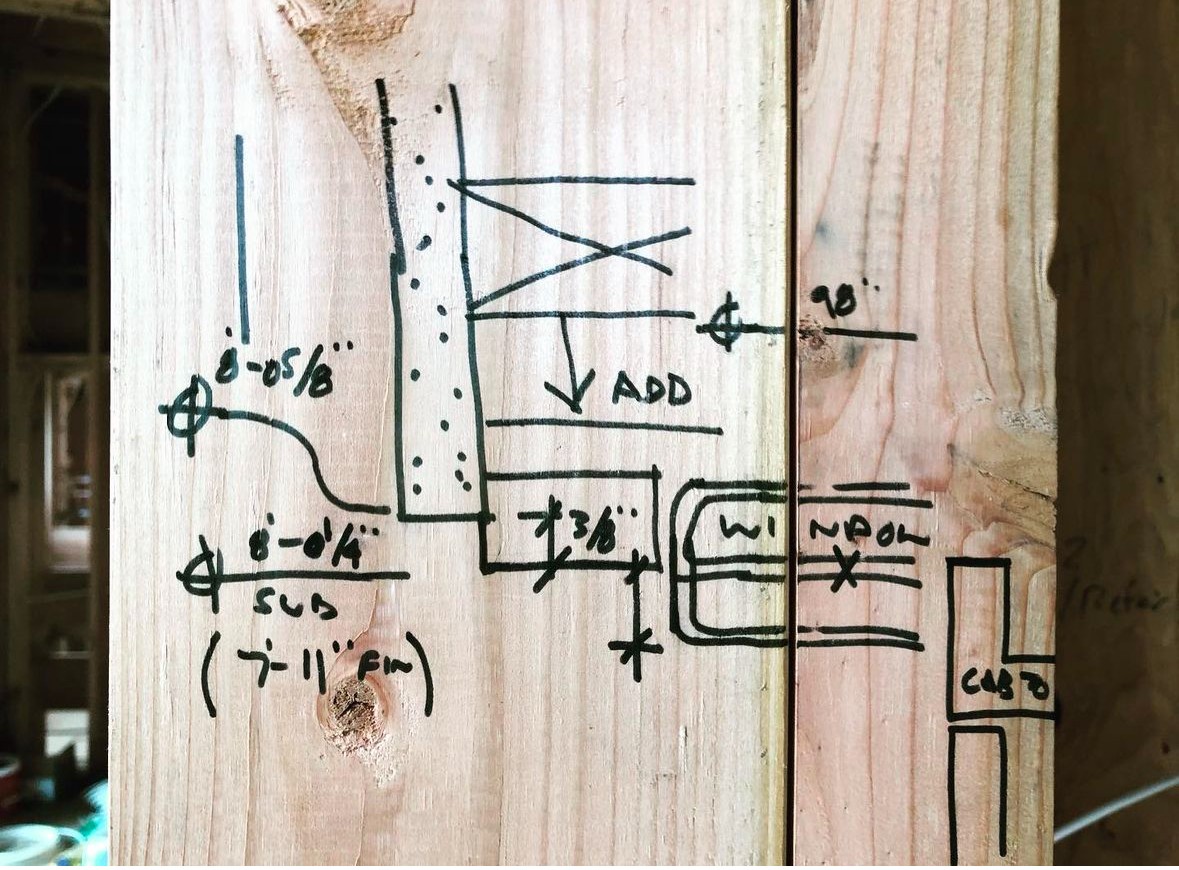 98"
8'-0 5/8"
ADD
3/8"
WINDOW
8'-0 1/4"
SUB
(7'-11" FIN)